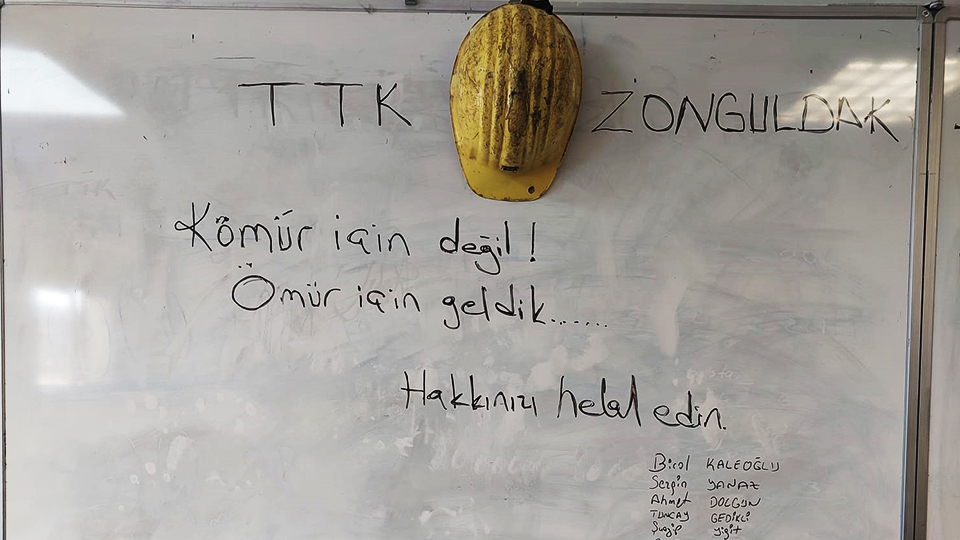 TTK ZONGULDAK
Kömür için değil!
Ömür için geldik.......
Hakkınızı helal edin.
Birol KALEOĞLU
Sezgin YANAZ
Ahmet DOLGUN
TUNCAY GEDİKLİ
Yiğit